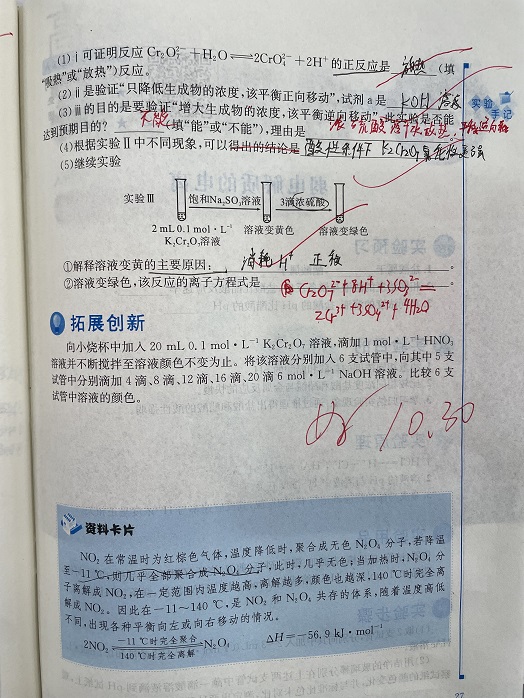 (1) ⅰ可证明反应 Cr₂O₇²⁻+H₂O⇌2CrO₄²⁻+2H⁺的正反应是 (填
"吸热"或"放热")反应。
(2) ⅱ是验证"只降低生成物的浓度,该平衡正向移动",试剂a是 KOH 溶液
(3) ⅲ的目的是要验证"增大生成物的浓度,该平衡逆向移动",此实验是否能
实验
手记
达到预期目的? 不能 (填"能"或"不能"),理由是 浓硫酸溶于水放热,
(4)根据实验Ⅱ中不同现象,可以得出的结论是 酸性条件下 K₂Cr₂O₇氧化性更强
(5)继续实验
实验Ⅲ 饱和Na₂SO₃溶液 3滴浓硫酸
2 mL 0.1 mol·L⁻¹ 溶液变黄色 溶液变绿色
K₂Cr₂O₇溶液
①解释溶液变黄的主要原因: 消耗H⁺ 正移 。
②溶液变绿色,该反应的离子方程式是 Cr₂O₇²⁻+8H⁺+3SO₃²⁻= 。
2Cr³⁺+3SO₄²⁻+4H₂O
拓展创新
向小烧杯中加入 20 mL 0.1 mol·L⁻¹ K₂Cr₂O₇ 溶液,滴加1 mol·L⁻¹ HNO₃
溶液并不断搅拌至溶液颜色不变为止。将该溶液分别加入6支试管中,向其中5支
试管中分别滴加4滴、8滴、12滴、16滴、20滴6 mol·L⁻¹ NaOH 溶液。比较6支
试管中溶液的颜色。
10.30
资料卡片
NO₂ 在常温时为红棕色气体,温度降低时,聚合成无色 N₂O₄ 分子,若降温
至-11 ℃,则几乎全部聚合成 N₂O₄ 分子,此时,几乎无色;当加热时,N₂O₄ 分
子离解成 NO₂,在一定范围内温度越高,离解越多,颜色也越深,140 ℃时完全离
解成 NO₂。因此在-11~140 ℃,是 NO₂ 和 N₂O₄ 共存的体系,随着温度高低
不同,出现各种平衡向左或向右移动的情况。
2NO₂ -11 ℃时完全聚合 ⇌ 140 ℃时完全离解 N₂O₄ ΔH=-56.9 kJ·mol⁻¹
27